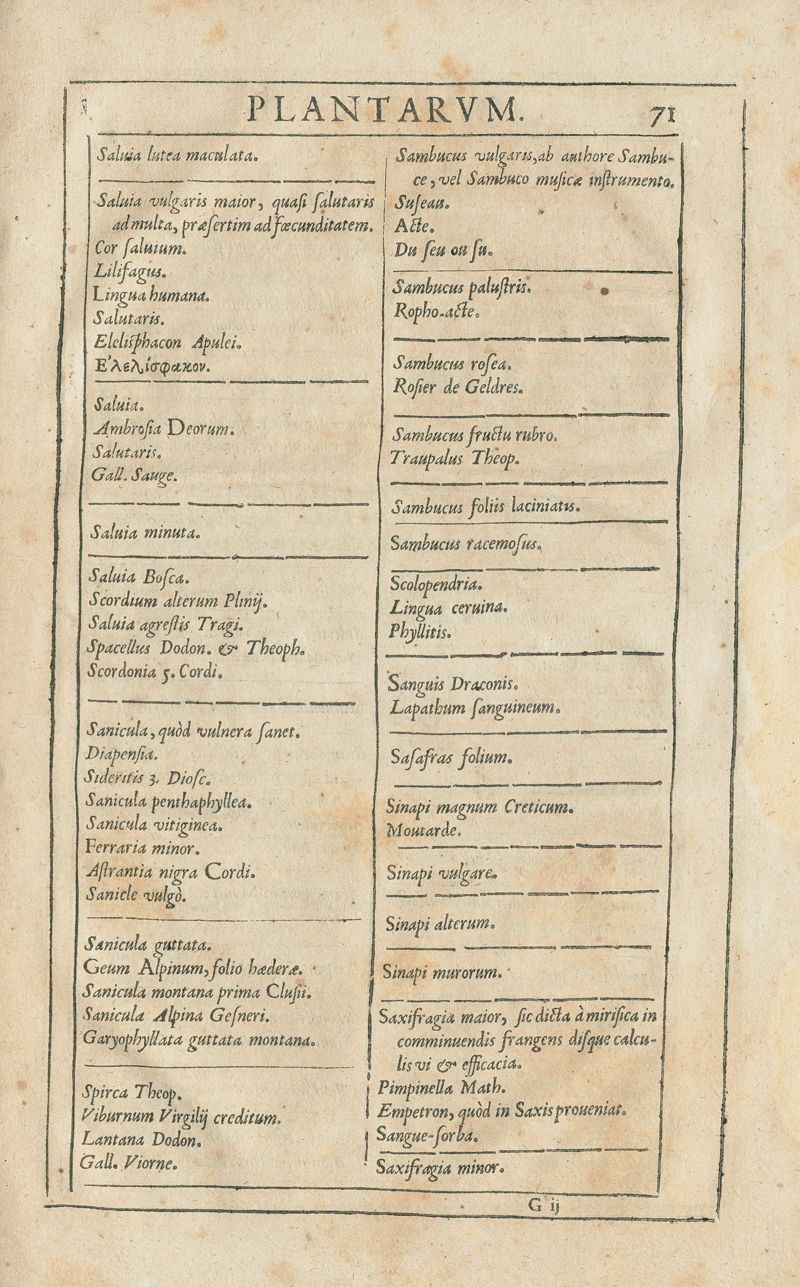 PLANTARVM. 71
Saluia lutea maculata.
Saluia vulgaris maior, quaſi ſalutaris
ad multa, præſertim ad fœcunditatem.
Cor ſaluium.
Lilifagus.
Lingua humana.
Salutaris.
Eleliſphacon Apulei.
Ε᾿λελίσφακον.
Saluia.
Ambroſia Deorum.
Salutaris.
Gall. Sauge.
Saluia minuta.
Saluia Boſca.
Scordium alterum Plinij.
Saluia agreſtis Tragi.
Spacellus Dodon. & Theoph.
Scordonia 5. Cordi.
Sanicula, quòd vulnera ſanet.
Diapenſia.
Sideritis 3. Dioſc.
Sanicula penthaphyllea.
Sanicula vitiginea.
Ferraria minor.
Aſtrantia nigra Cordi.
Sanicle vulgò.
Sanicula guttata.
Geum Alpinum, folio hæderæ.
Sanicula montana prima Cluſii.
Sanicula Alpina Geſneri.
Garyophyllata guttata montana.
Spirca Theop.
Viburnum Virgilij creditum.
Lantana Dodon.
Gall. Viorne.
Sambucus vulgaris, ab authore Sambu-
ce, vel Sambuco muſicæ inſtrumento.
Suſeau.
Acte.
Du ſeu ou ſu.
Sambucus paluſtris.
Ropho-acte.
Sambucus roſea.
Roſier de Geldres.
Sambucus fructu rubro.
Traupalus Theop.
Sambucus foliis laciniatis.
Sambucus racemoſus.
Scolopendria.
Lingua ceruina.
Phyllitis.
Sanguis Draconis.
Lapathum ſanguineum.
Saſafras folium.
Sinapi magnum Creticum.
Moutarde.
Sinapi vulgare.
Sinapi alterum.
Sinapi murorum.
Saxifragia maior, ſic dicta à mirifica in
comminuendis frangens diſque calcu-
lis vi & efficacia.
Pimpinella Math.
Empetron, quòd in Saxis proueniat.
Sangue-ſorba.
Saxifragia minor.
G ij